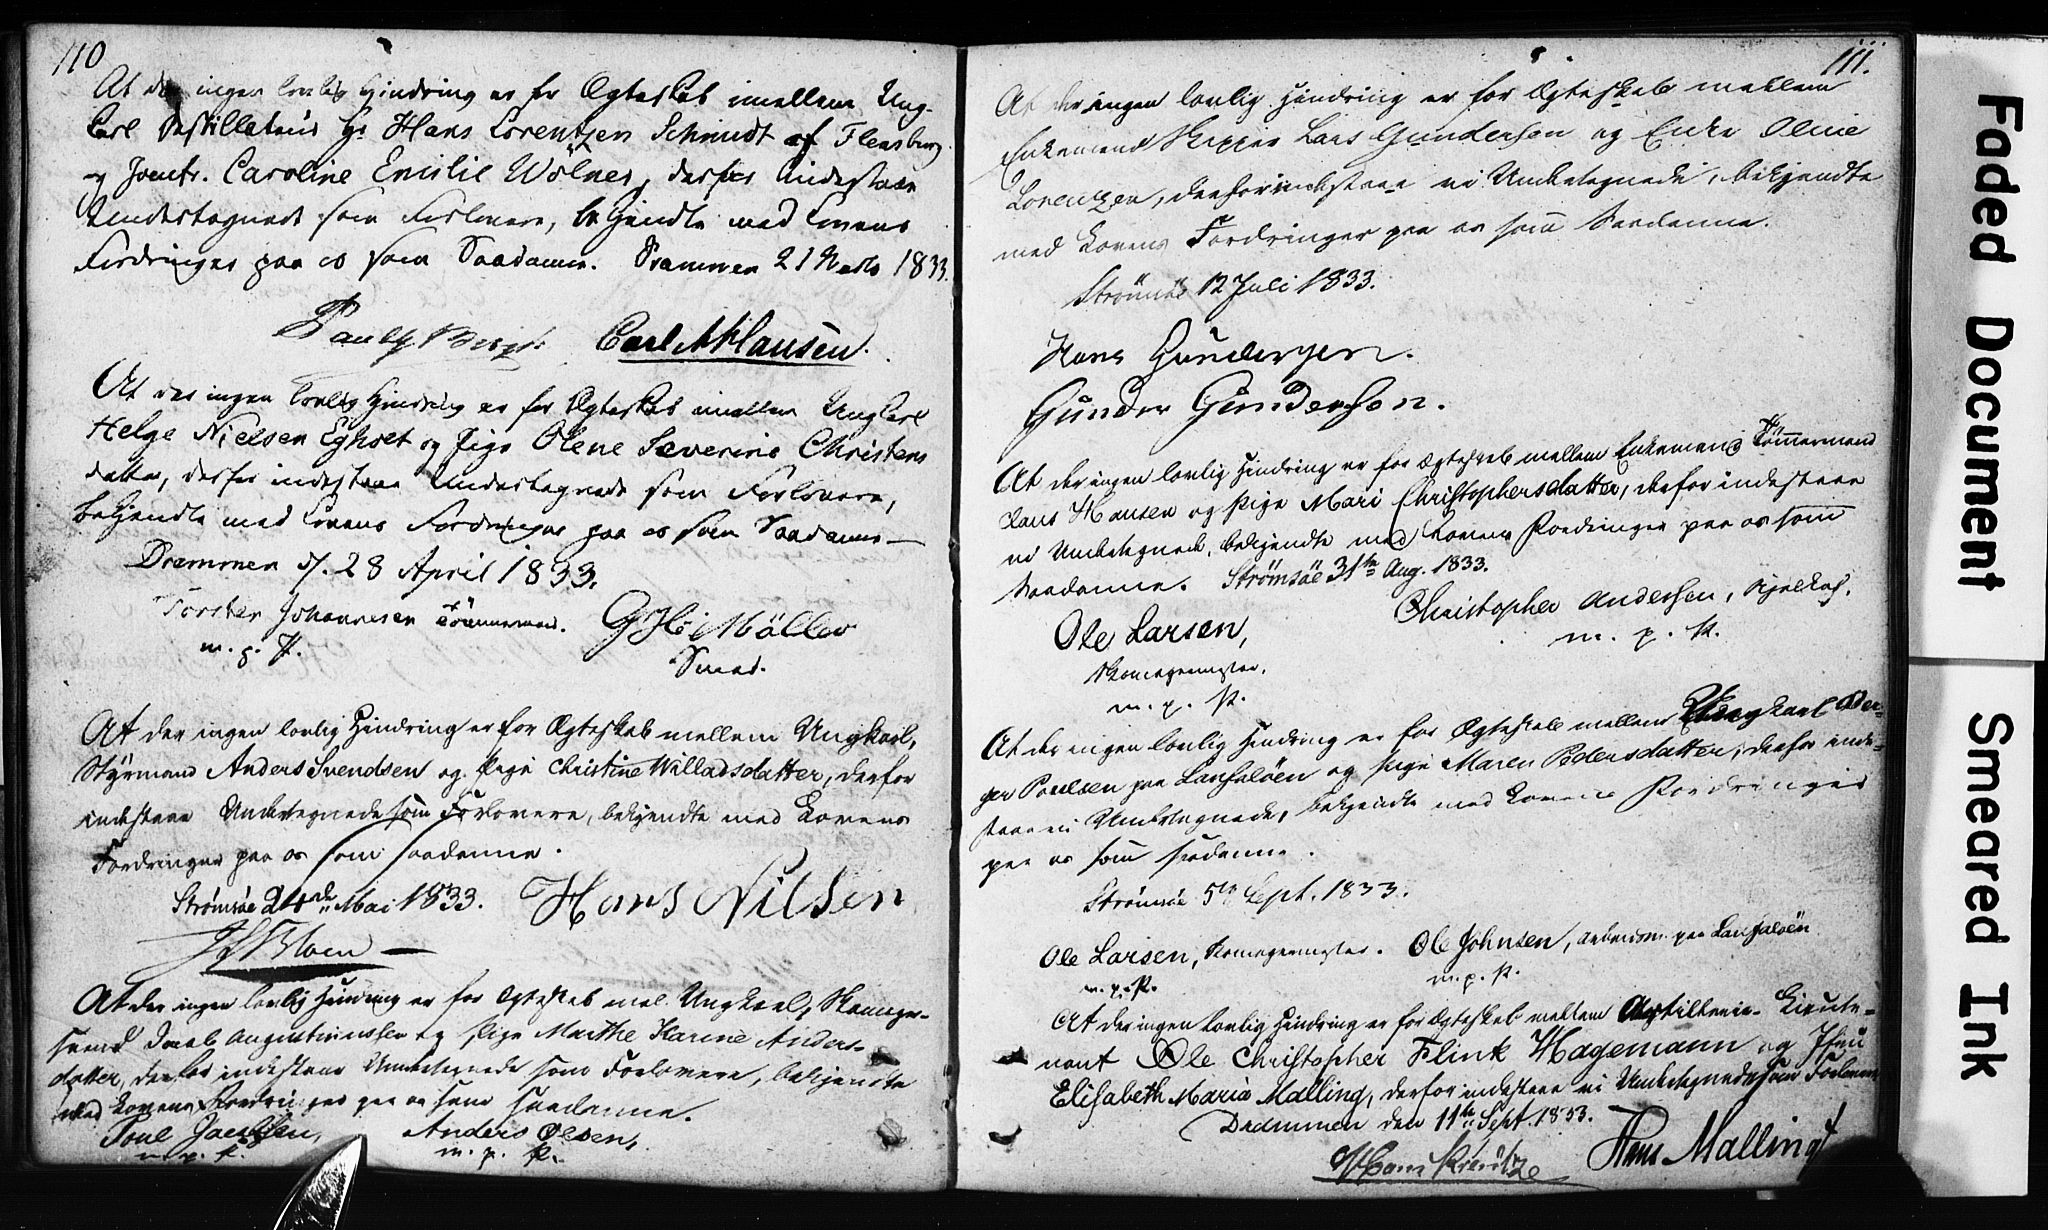 110
At der ingen lovlig Hindring er for Ægteskab imellem Ung-
karl Destillateur Hr Hans Lorentzen Schmidt af Flensburg
og Jomfr. Caroline Emilie Wölner, derfor indestaae
Undertegnede som Forlovere, bekjendte med Lovens
Fordringer paa os som Saadanne. Drammen 21 Marts 1833.
Carl A Hansen.
At der ingen lovlig Hindring er for Ægteskab imellem Ungkarl
Helge Nielsen Egholt og Pige Olene Severine Christens
datter, derfor indestaae Undertegnede som Forlovere,
bekjendte med Lovens Fordringer paa os som Saadanne
Drammen d. 28 April 1833.
Torsten Johannesen Tömmermand.
m. p. P.
G H Möller
Smed.
At der ingen lovlig Hindring er for Ægteskab mellem Ungkarl,
Styrmand Anders Svendsen og Pige Christine Willadsdatter, derfor
indestaae Undertegnede som Forlovere, bekjendte med Lovens
Fordringer paa os som saadanne.
Strømsøe 24de Mai 1833. Hans Nilsen
At der ingen lovlig Hindring er for Ægteskab mel. Ungkarl, Skomager-
svend Jacob Augustinussen og Pige Marthe Karine Anders-
datter, derfor indestaae Undertegnede som Forlovere, bekjendte
med Lovens Fordringer paa os som saadanne.
Poul Jacobsen, Anders Olsen,
m. p. P. m. p. P.
111.
At der ingen lovlig Hindring er for Ægteskab mellem
Enkemand Skipper Lars Gundersen og Enke Oline
Lorentzen, derfor indestaae vi Undertegnede, bekjendte
med Lovens Fordringer paa os som Saadanne.
Strömsöe 12 Juli 1833.
Hans Gundersen.
Gunder Gundersen.
At der ingen lovlig Hindring er for Ægteskab mellem Enkemand Tömmermand
Claus Hansen og Pige Mari Christophersdatter, derfor indestaae
vi Undertegnede, bekjendte med Lovens Fordringer paa os som
Saadanne. Strømsöe 31te Aug. 1833.
Ole Larsen,
Skomagermester.
m. p. P.
Christopher Andersen,
m. p. P.
At der ingen lovlig Hindring er for Ægteskab mellem Ungkarl
Poulsen paa Langeløen og Pige Maren Pedersdatter, derfor inde-
staae vi Undertegnede, bekjendte med Lovens Fordringer
paa os som saadanne.
Strömsöe 5te Sept. 1833.
Ole Larsen, Skomagermester. Ole Johnsen, Arbeidsm. paa Langeløen
m. p. P. m. p. P.
At der ingen lovlig Hindring er for Ægteskab mellem Artillerie-Lieute-
nant Ole Christopher Flink Hagemann og Jfru
Elisabeth Maria Malling, derfor indestaae vi Undertegnede som Forlovere
Drammen den 11te Sept. 1833.
Hans Kreütz Hans Malling
Faded Document Smeared Ink